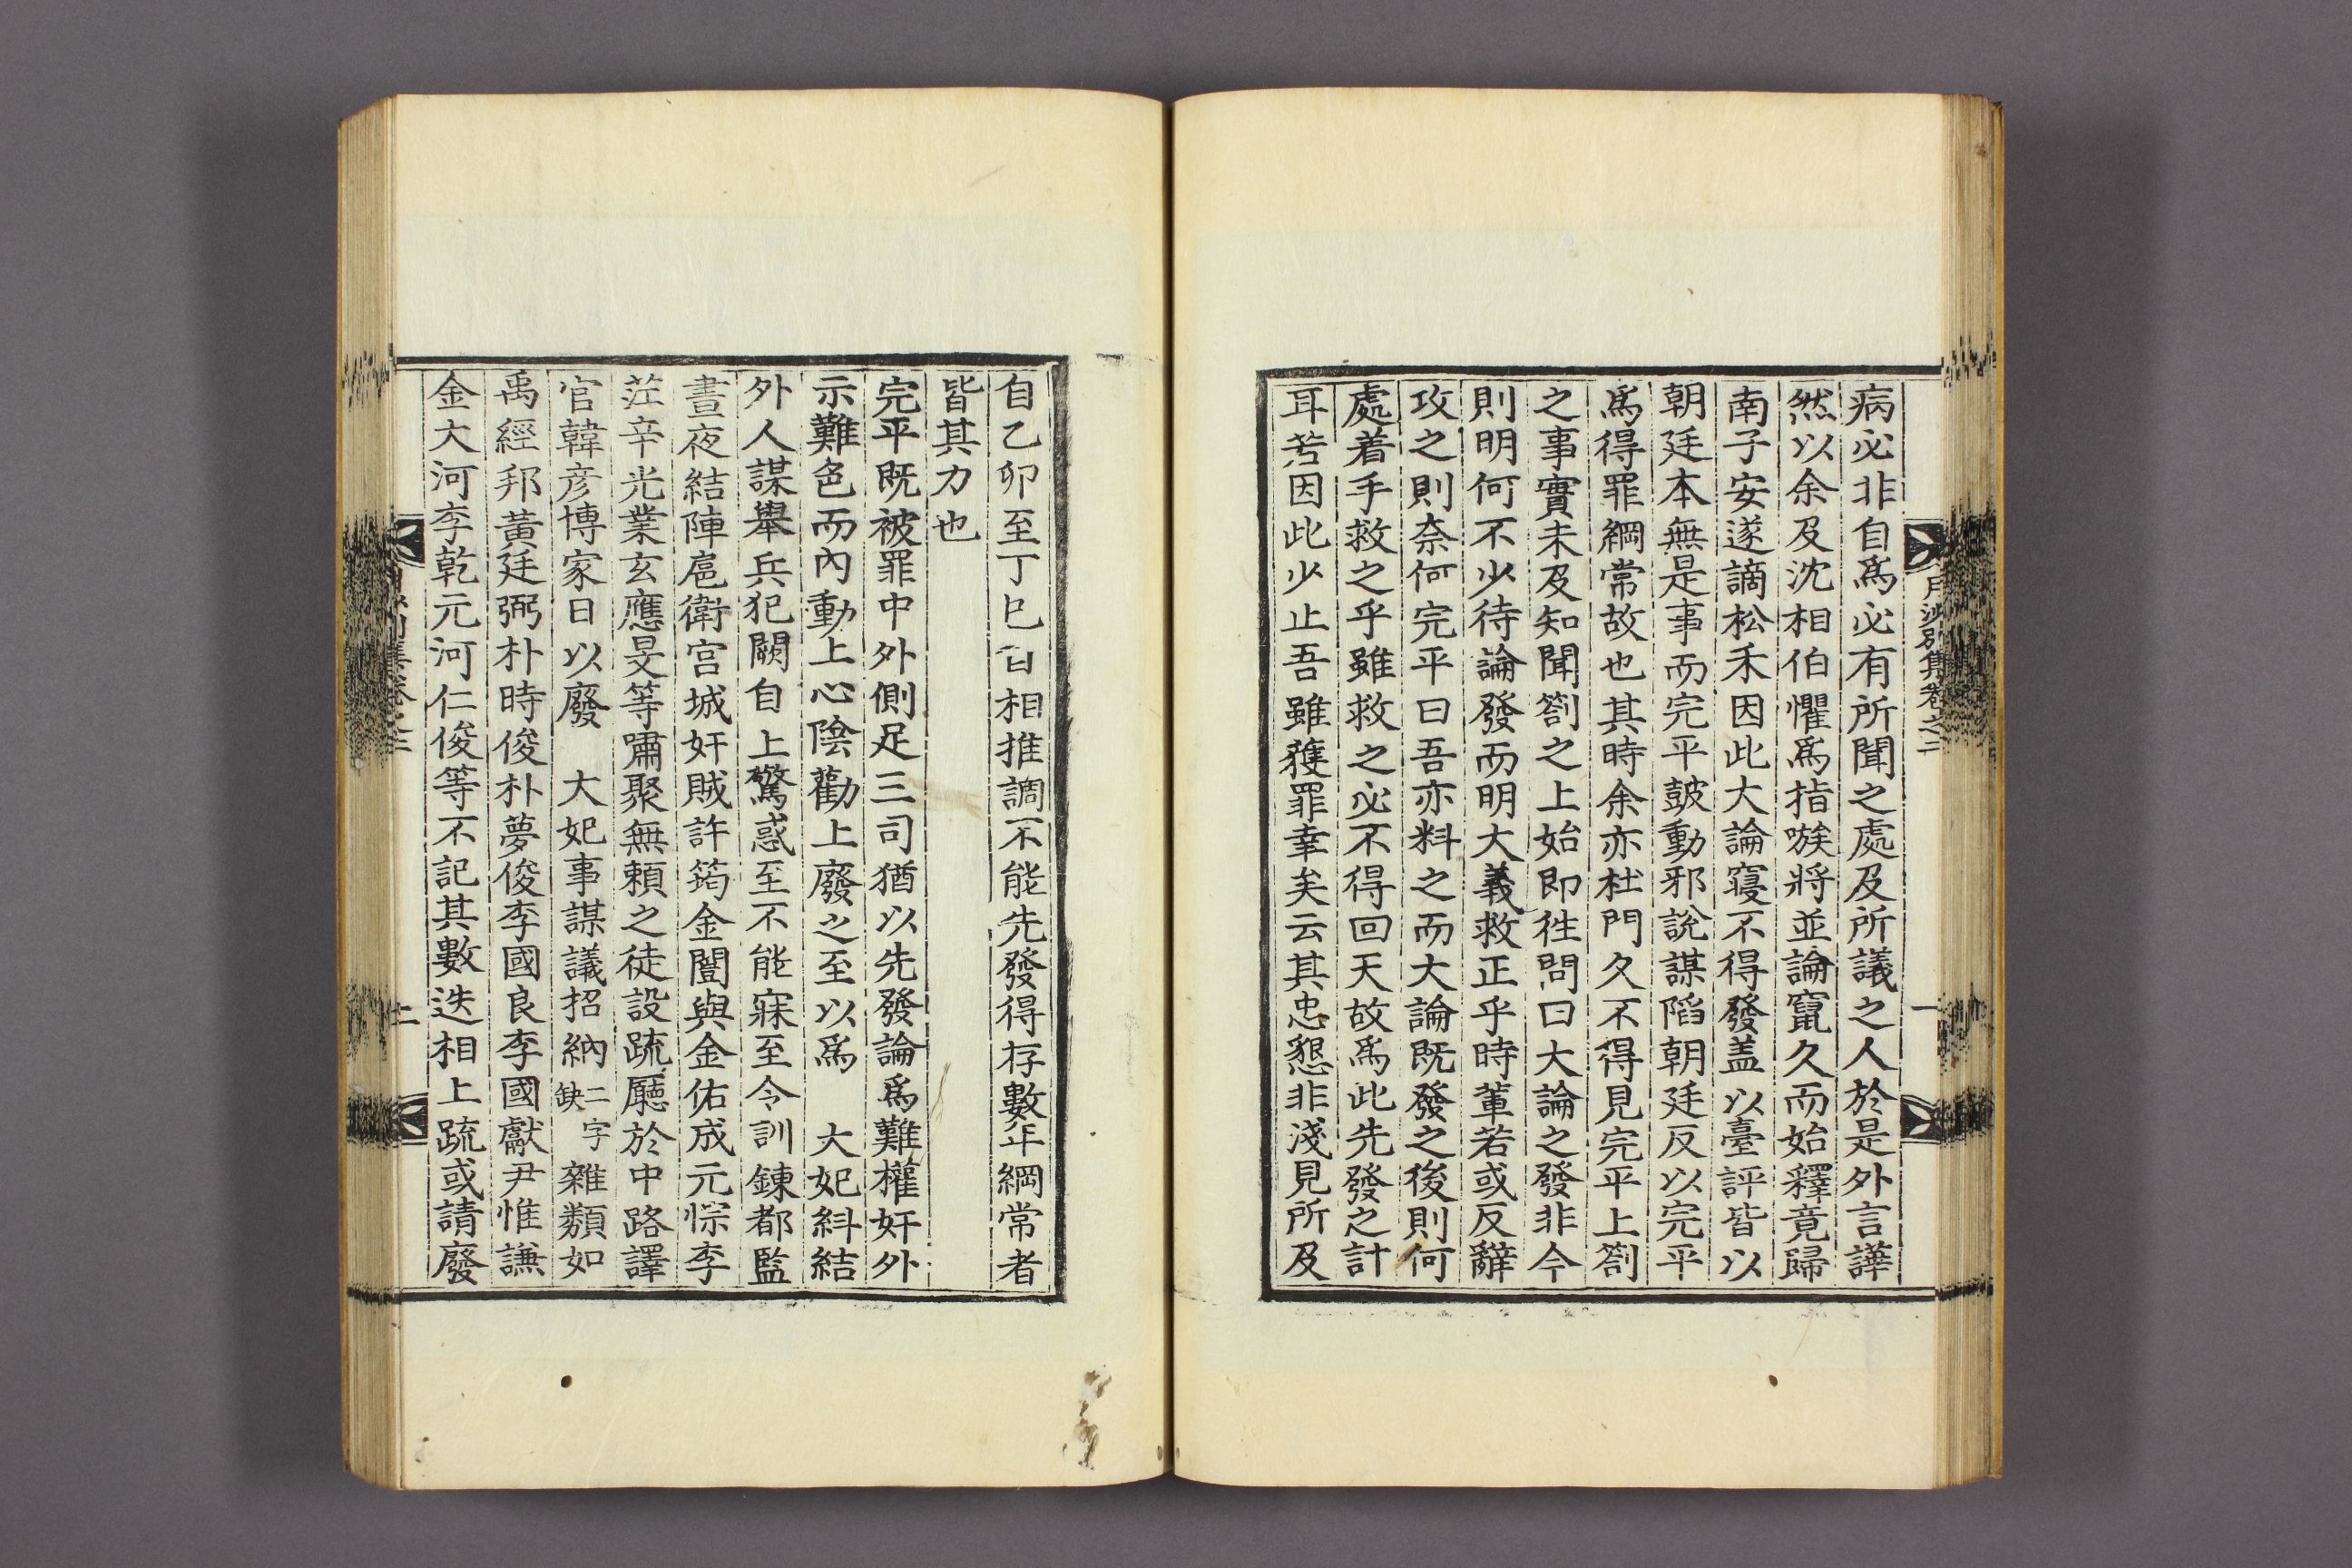 月沙別集卷之二
一
病必非自爲必有所聞之處及所議之人於是外言譁
然以余及沈相伯懼爲指嗾將並論竄久而始釋竟歸
南子安遂謫松禾因此大論寢不得發盖以臺評皆以
朝廷本無是事而完平鼓動邪說謀陷朝廷反以完平
爲得罪綱常故也其時余亦杜門久不得見完平上箚
之事實未及知聞箚之上始即徃問曰大論之發非今
則明何不少待論發而明大義救正乎時輩若或反辭
攻之則奈何完平曰吾亦料之而大論既發之後則何
處着手救之乎雖救之必不得回天故爲此先發之計
耳若因此少止吾雖獲罪幸矣云其忠懇非淺見所及
自乙卯至丁巳相推調不能先發得存數年綱常者
皆其力也
完平既被罪中外側足三司猶以先發論爲難權奸外
示難色而內動上心陰勸上廢之至以爲 大妃糾結
外人謀舉兵犯闕自上驚惑至不能寐至令訓鍊都監
晝夜結陣扈衛宮城奸賊許筠金闓與金佑成元悰李
茳辛光業玄應旻等嘯聚無賴之徒設疏廳於中路譯
官韓彦博家日以廢 大妃事謀議招納二字缺雜類如
禹經邦黃廷弼朴時俊朴夢俊李國良李國獻尹惟謙
金大河李乾元河仁俊等不記其數迭相上疏或請廢
二